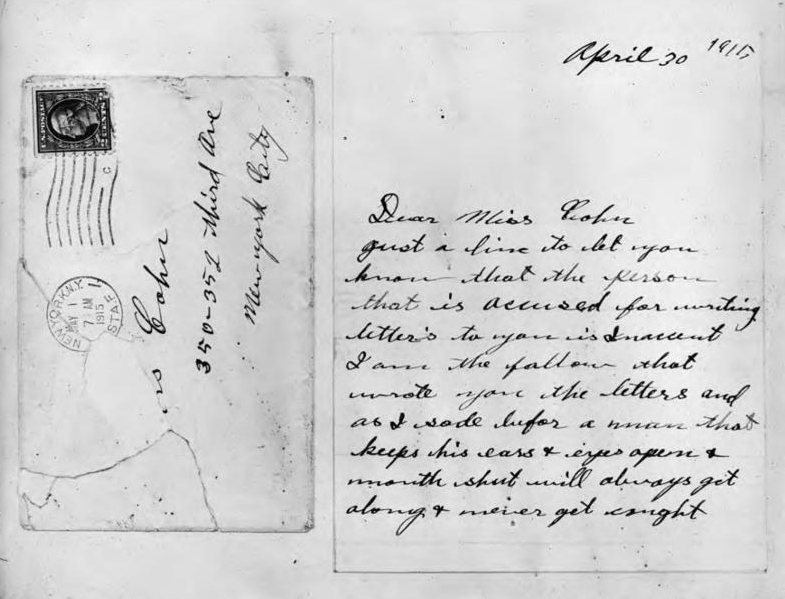 U.S. POSTAGE
2 CENTS 2
NEW YORK, N.Y.
MAY 1
7 AM
1915
STA. F
rs Cohn
350-352 Third Ave
New york City
April 30 1915
Dear Miss Cohn
just a line to let you
know that the person
that is accused for writing
letter's to you is Innacent
I am the fallow that
wrote you the letters and
as I sade befor a man that
keeps his ears & eyes open &
mouth shut will always get
along & never get caught